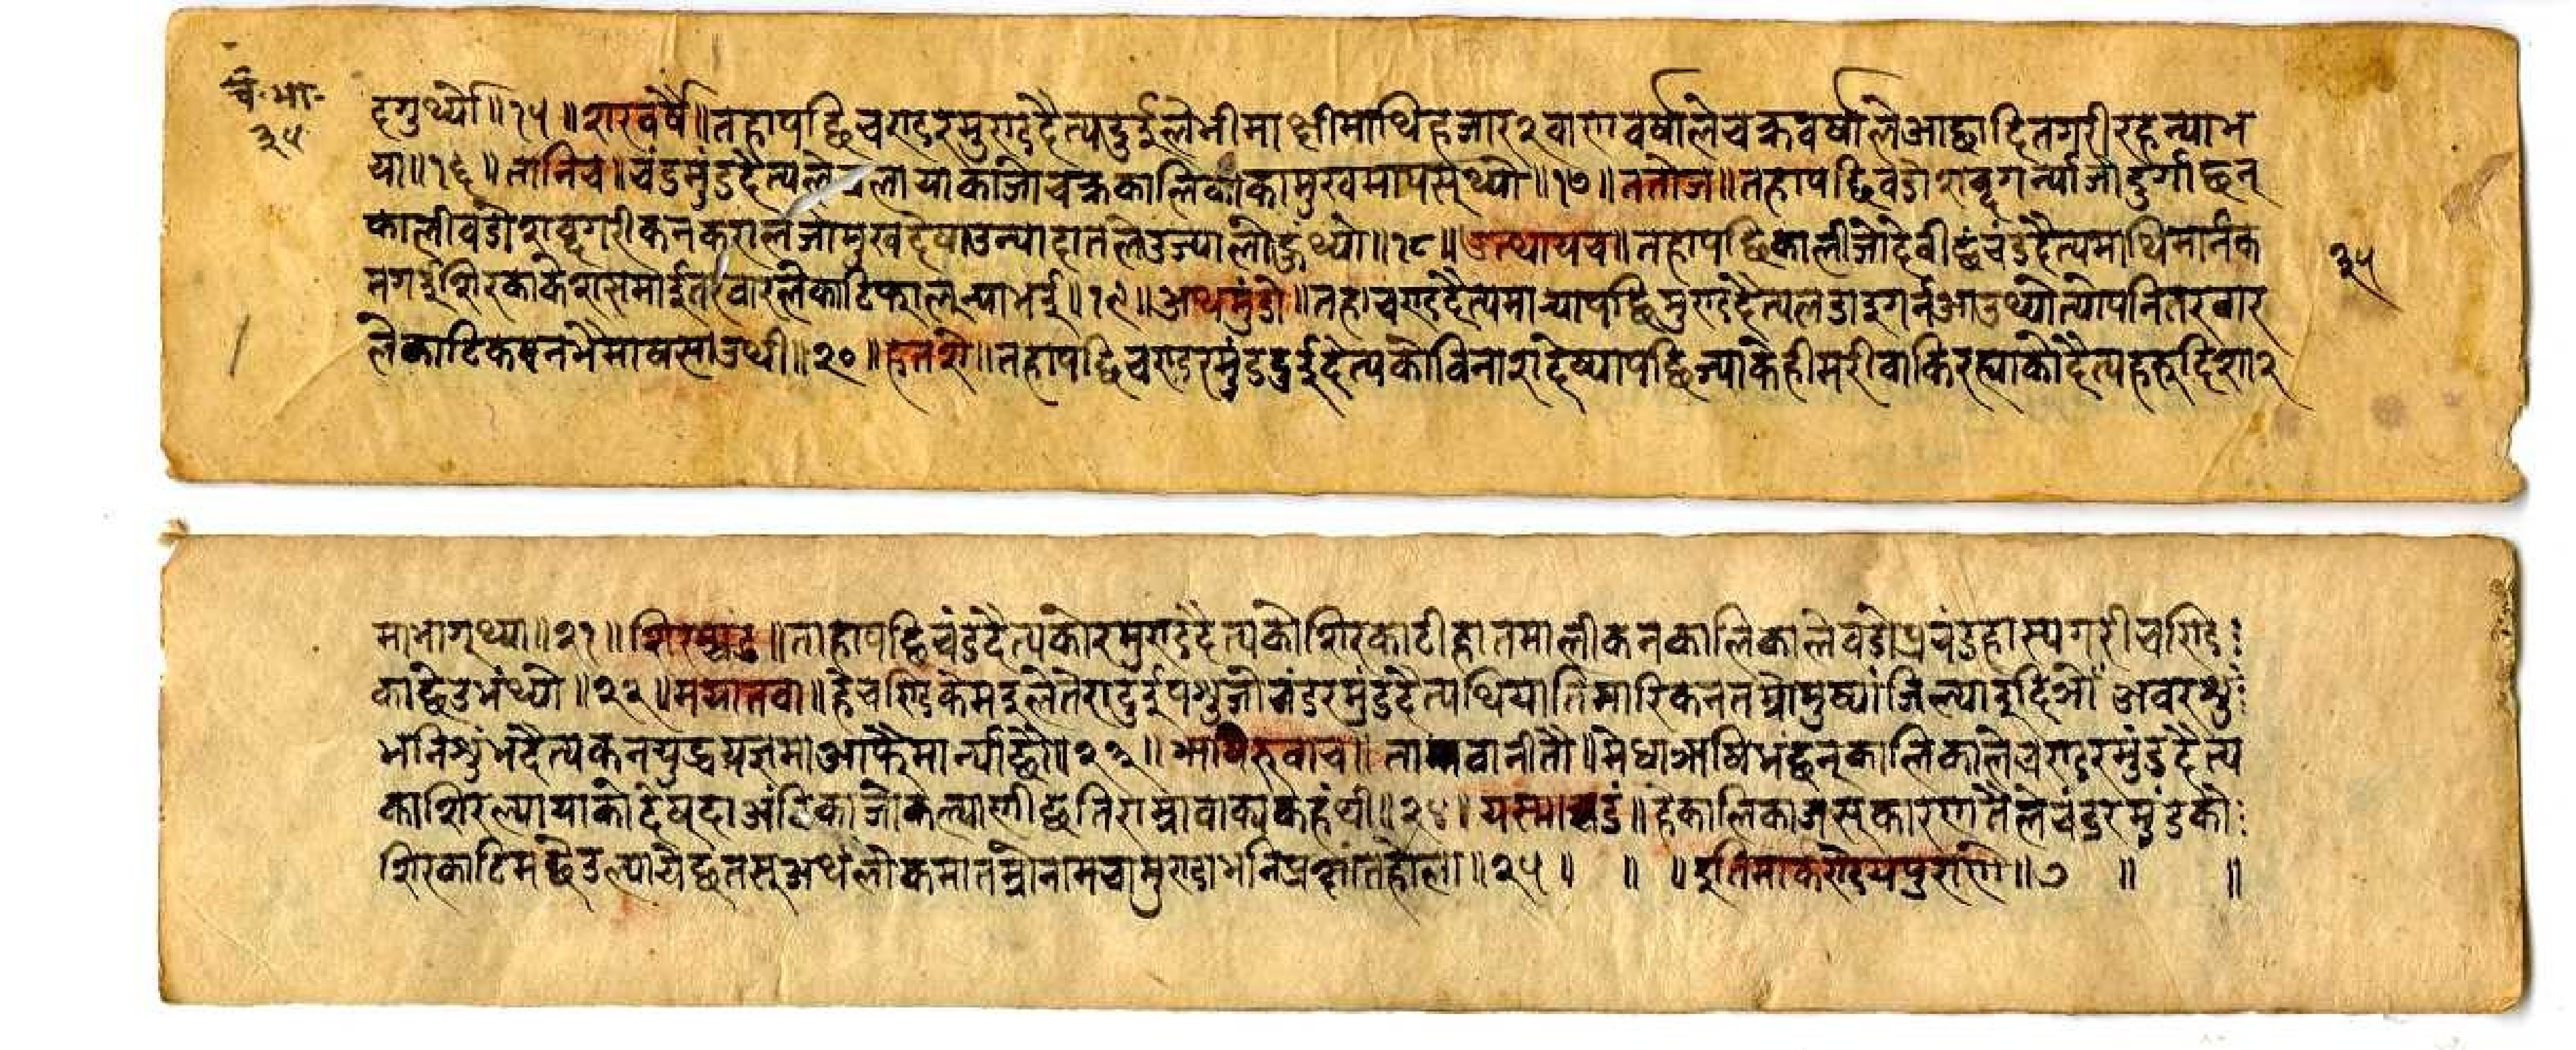 चं॰भा॰
३५
दगुथ्यो॥१५॥शरवर्षै॥तहापछिचण्डरमुण्डदैत्यदुईलेभीमाक्षीमाथिहजार२वाणवर्षालेचक्रवर्षालेआछादितगरीरहन्याभ
या॥१६॥तानिच॥चंडमुंडदैत्यलेचलायाकाजोचक्रकालिकाकामुखमापस्थ्यो॥१७॥ततोज॥तहापछिवडोशव्दगर्न्याजोदुर्गाछन्
कालीवडोशव्दगरीकनकरालजोमुखदेषाउन्यादातलेउज्यालोहुंथ्यो॥१८॥उत्थायच॥तहापछिकालीजोदेवीछंचंडदैत्यमाथिमार्नक
मगईशिरकाकेशसमाईतरवारलेकाटिफाल्न्याभई॥१९॥अथमुंडो॥तहाचण्डदैत्यमार्‍यापछिमुण्डदैत्यलडाइगर्नआउथ्योत्योपनितरवार
लेकाटिकननभैमाषसाउथी॥२०॥हतशे॥तहापछिचण्डरमुंडदुईदैत्यकोविनाशदेष्यापछिज्याकेहीमरीवाकिरह्याकोदैत्यहरूदिशा२
३५
माभाग्थ्या॥२१॥शिरश्चंड॥ताहापछिचंडदैत्यकोरमुण्डदैत्यकोशिरकाटीहातमालीकनकालिकालेवडोप्रचंडहास्यगरीचण्डि
काछेउभंथ्यो॥२२॥मयातवा॥हेचण्डिकेमइलेतेरादुईपशुजोचंडरमुंडदैत्यथियातिमारिकनतम्रामुष्यांजिल्याइदिञो अवरशुं
भनिशुंभदैत्यकनयुद्धयज्ञमाआफैमार्न्याछौ॥२३॥ऋषिरुवाच॥तावानीतौ॥मेधाऋषिभंछन्कालिकालेचण्डरमुंडदैत्य
काशिरल्यायाकोदेषदाअंविकाजोकल्याणीछतिराम्रावाक्यकहंथी॥२४॥यस्माचंडं॥हेकालिकाजसकारणतैलेचंडरमुंडको
शिरकाटिमछेउल्यायैछतसअर्थलोकमातम्रोनामचामुण्डाभनिप्रख्यांतहोला॥२५॥ ॥ ॥इतिमार्कण्डेयपुराणे॥७ ॥ ॥